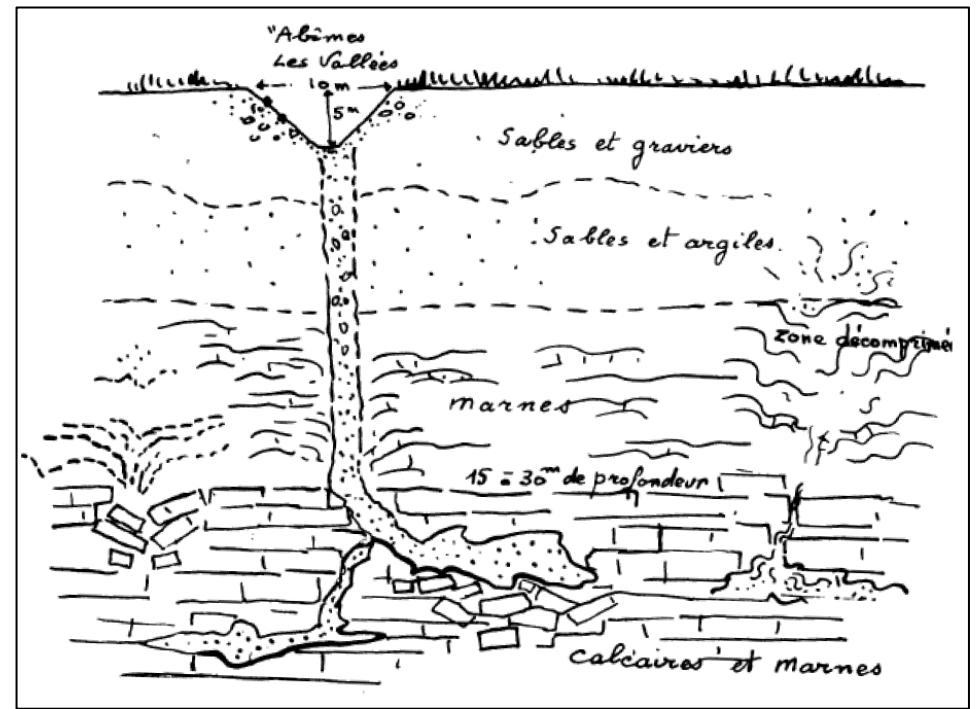 "Abîmes
Les Vallées
10 m
5 m
Sables et graviers
Sables et argiles.
Zone décomprimé
Marnes
15 = 30 m de profondeur
Calcaires et Marnes